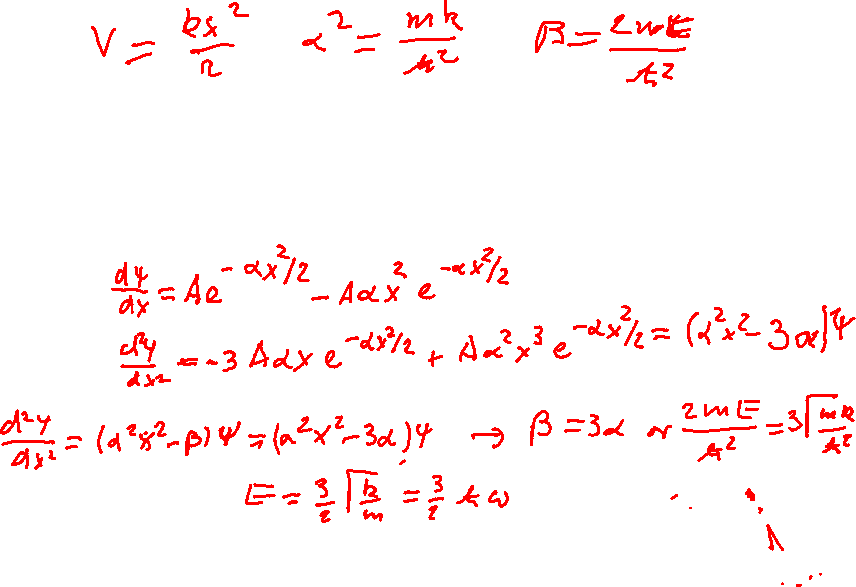 V = kx²/2   α² = mk/ħ²   β = 2mE/ħ²
dψ/dx = Ae^(-αx²/2) - Aαx² e^(-αx²/2)
d²ψ/dx² = -3Aαx e^(-αx²/2) + Aα²x³ e^(-αx²/2) = (α²x² - 3α)ψ
d²ψ/dx² = (α²x² - β)ψ = (α²x² - 3α)ψ → β = 3α or 2mE/ħ² = 3√(mk/ħ²)
E = 3/2 √(k/m) = 3/2 ħω